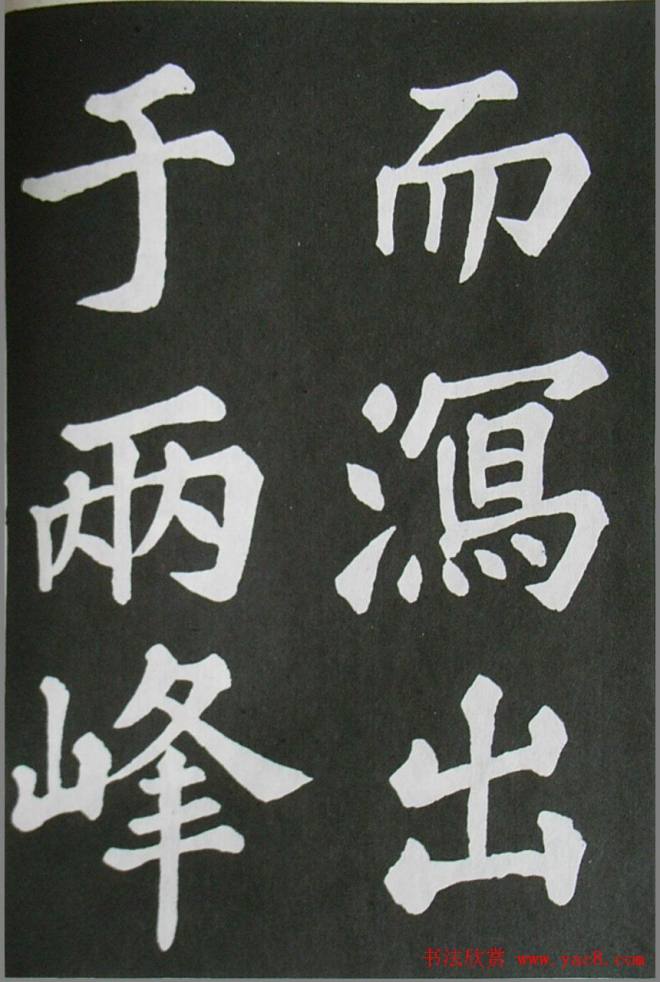 而瀉出
于兩峰
书法欣赏 www.yac8.com